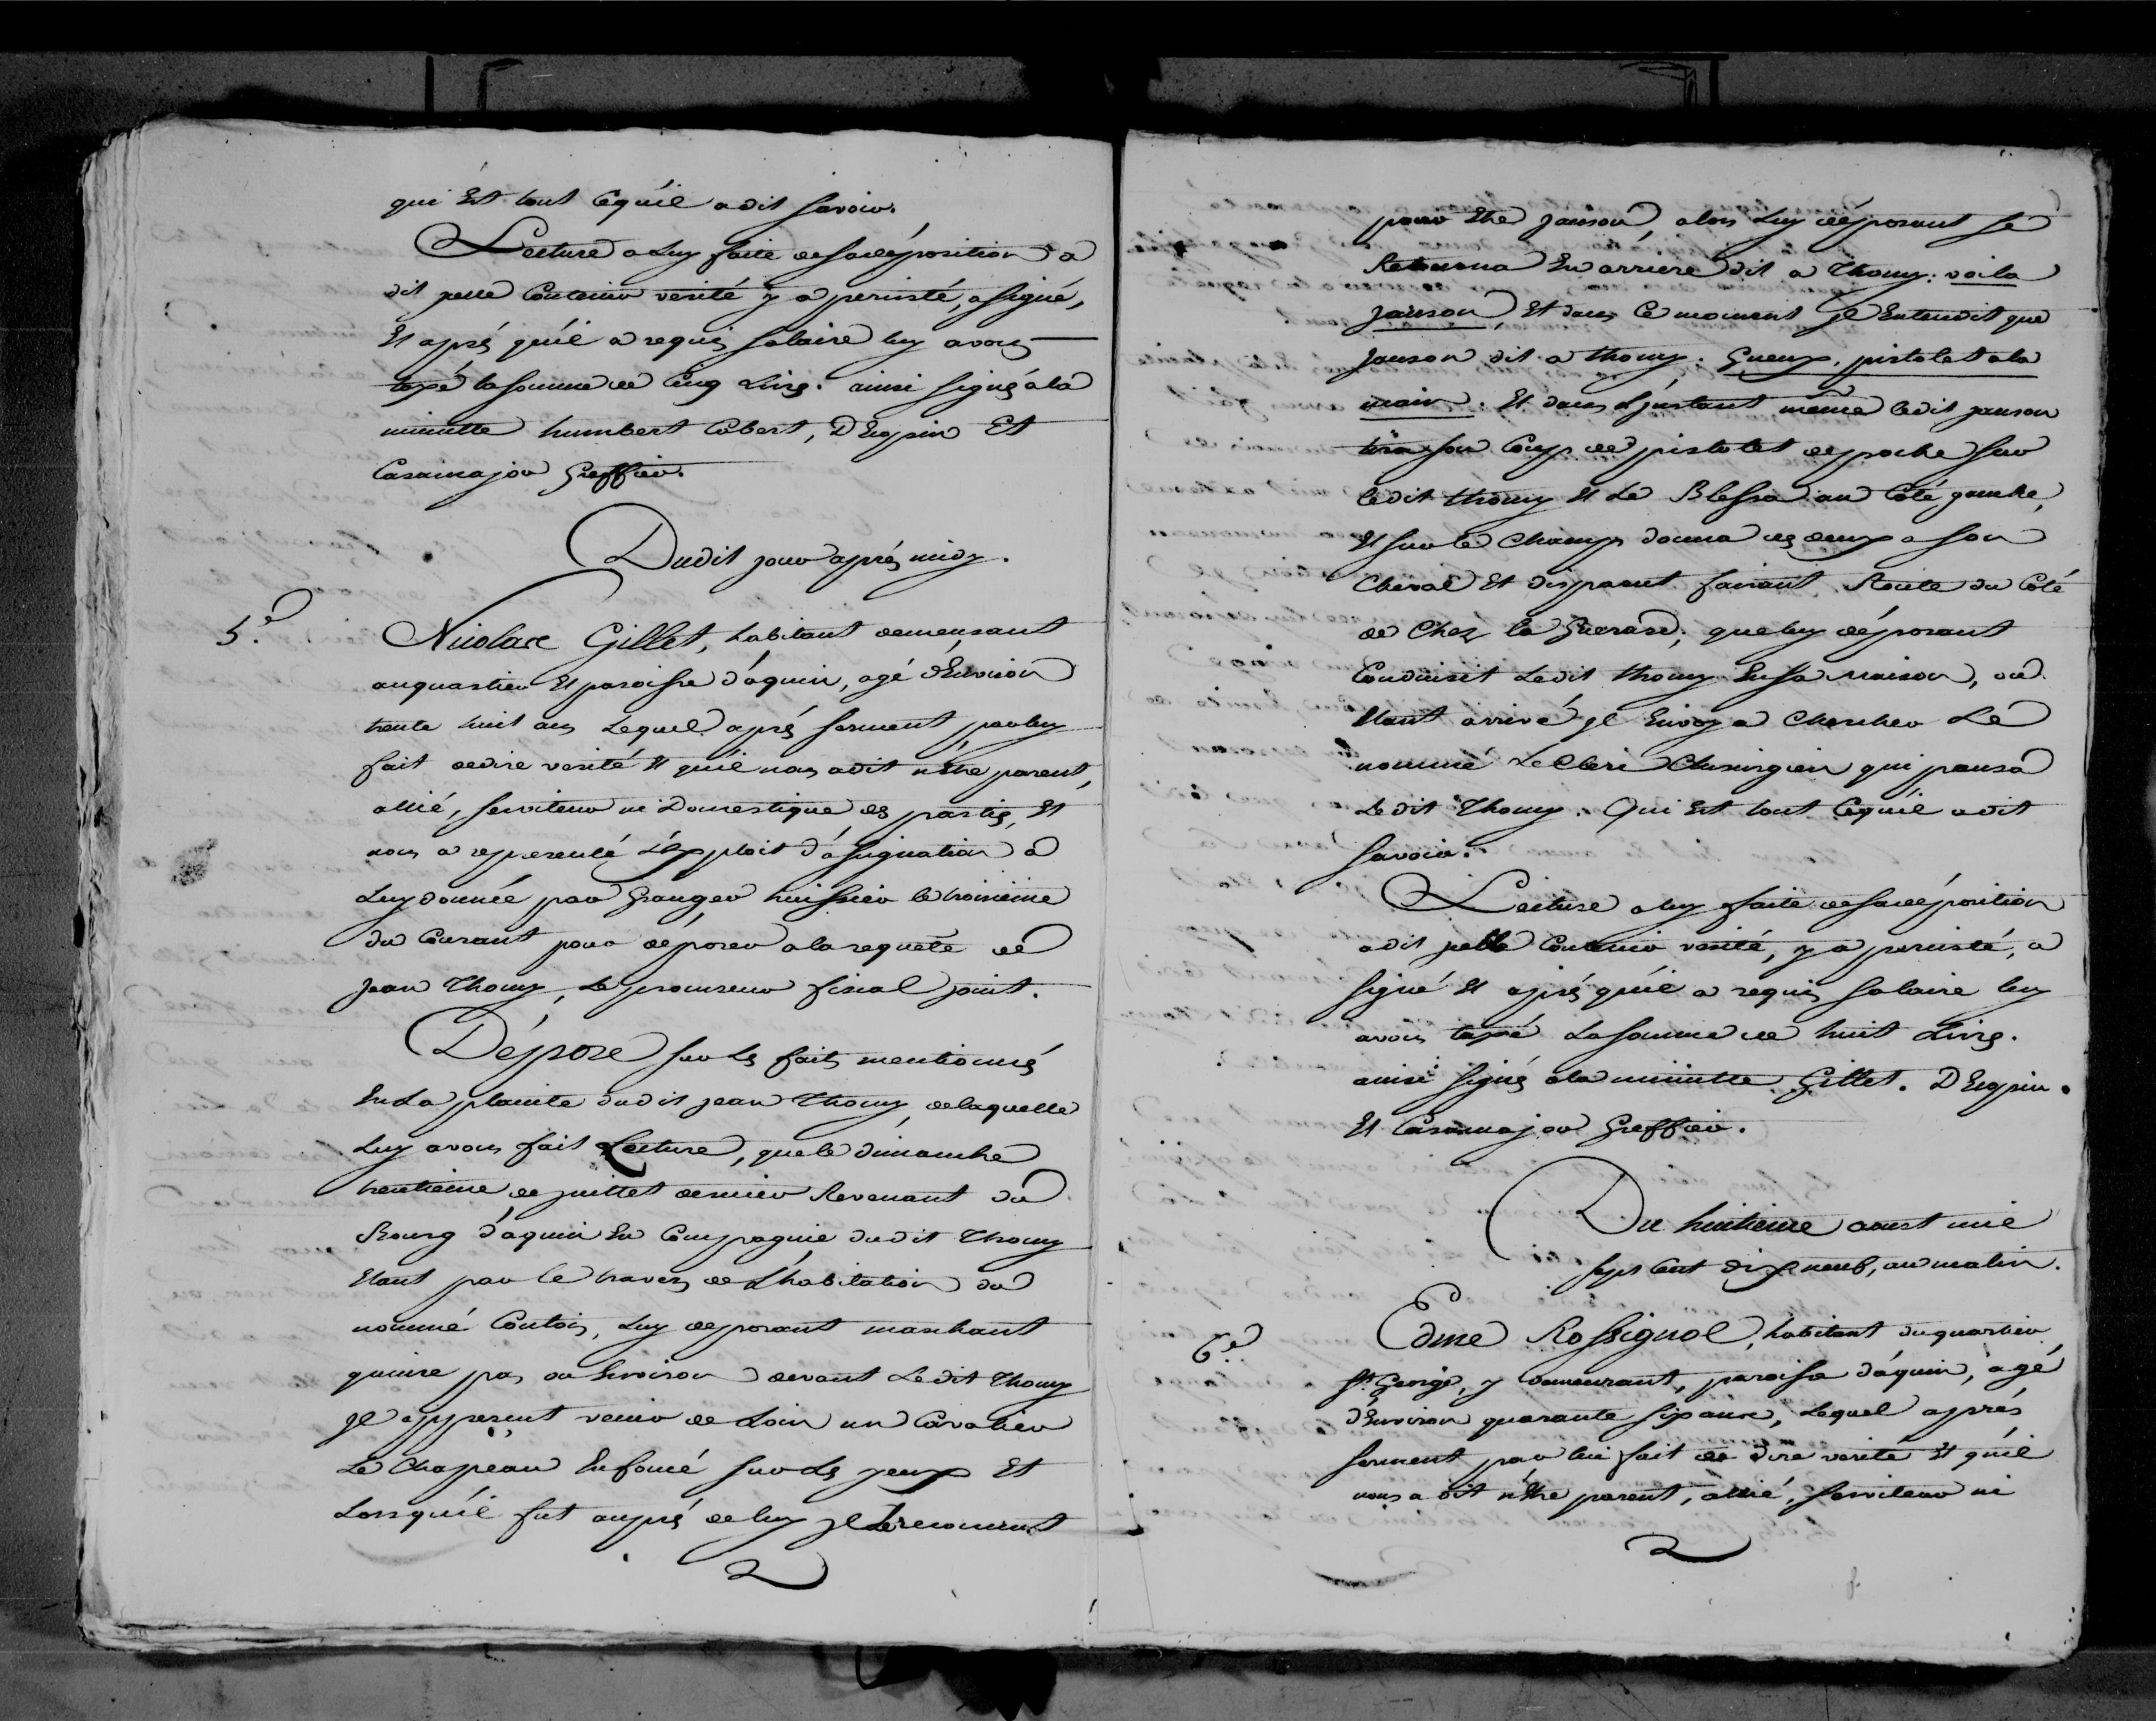 qui Est tout Cequ'il a dit savoir.
Lecture a Luy faite de sa déposition a
dit jcelle Contenir verité y a persisté, a signé,
Et aprés qu'il a requis salaire luy avons
taxé la somme de Cinq Livrs. ainsi signés a la
minutte humbert Cobert, D'Espin Et
Casamajor Greffier.
Dudit jour aprés midy.
5.e
Nicolase Gillet, habitant demeurant
au quartier Et paroisse d'aquin, agé d'Environ
trente huit ans Lequel aprés serment par luy
fait de dire verité Et qu'il nous a dit n'Etre parent,
allié, serviteur ni Domestique des partis, Et
nous a representé L'Exploit d'assignation a
Luy donnée par Granger huissier le troisiéme
du Courant pour déposer a la requete de
Jean Thomy, Le procureur fiscal joint.
Dépose sur Les faits mentionnés
En La plainte dudit jean Thomy, de laquelle
Luy avons fait Lecture, que le dimanche
trentieme de juillet dernier Revenant du
Bourg d'aquin En Compagnie dudit Thomy
Etant par le travers de L'habitation du
nommé Contois, Luy deposant marchant
quinse pas ou Environ devant Ledit Thomy
jl apperçut venir de Loin un Cavalier
Le Chapeau Enfoncé sur Les yeux Et
Lorsqu'il fut auprés de luy jl Le reconnut
pour Etre janson, alors Luy déposant se
Retourna En arriere dit a Thomy: voila
janson, Et dans Ce moment jl Entendit que
janson dit a thomy: Gueux, pistolet a la
main. Et dans L'jnstant même ledit janson
tira son Coup de pistolet de poche sur
ledit thomy Et Le Blessa au Coté gauche,
Et sur le Champs donna des deux a son
Cheval Et disparut faisant Route du Coté
de Chez la Guerase; que luy déposant
Conduisit Ledit thomy En sa maison, où
Etant arrivé jl Envoya Chercher Le
nommé LeClerc Chirurgien qui pansa
Ledit Thomy. Qui Est tout Cequ'il a dit
savoir.
Lecture a luy faite de sa déposition
a dit jcelle Contenir verité, y a persisté, a
signé Et aprés qu'il a requis salaire luy
avons taxé La somme de huit Livrs.
ainsi signés a la minutte Gillet. D'Espin.
Et Casamajor Greffier.
Du huitieme aoust mil
sept Cent dix neuf, au matin.
6.e
Edme Rossignol, habitant du quartier
St. George, y demeurant, paroisse d'aquin, agé
d'Environ quarante six ans, Lequel aprés
serment par lui fait de dire verité Et qu'il
nous a dit n'Etre parent, allié, serviteur ni